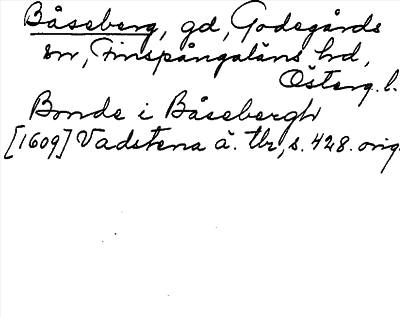 Båseberg, gd, Godegårds
sn, Finspångaläns hd,
Österg. l.
Bonde i Båsebergh
[1609] Vadstena ä. tbr, s. 428. orig.